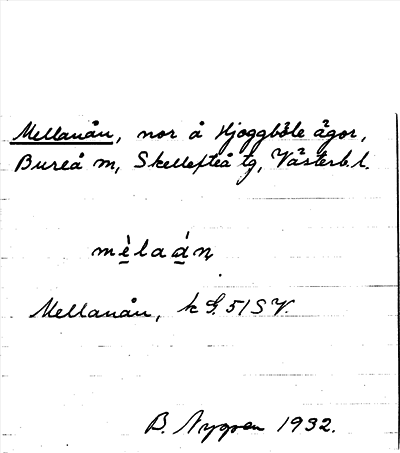 Mellanån, nor å Hjoggböle ägor,
Bureå m, Skellefteå tg, Västerb. l.
mèlaáņ
Mellanån, k G. 51 SV.
B. Nygren 1932.